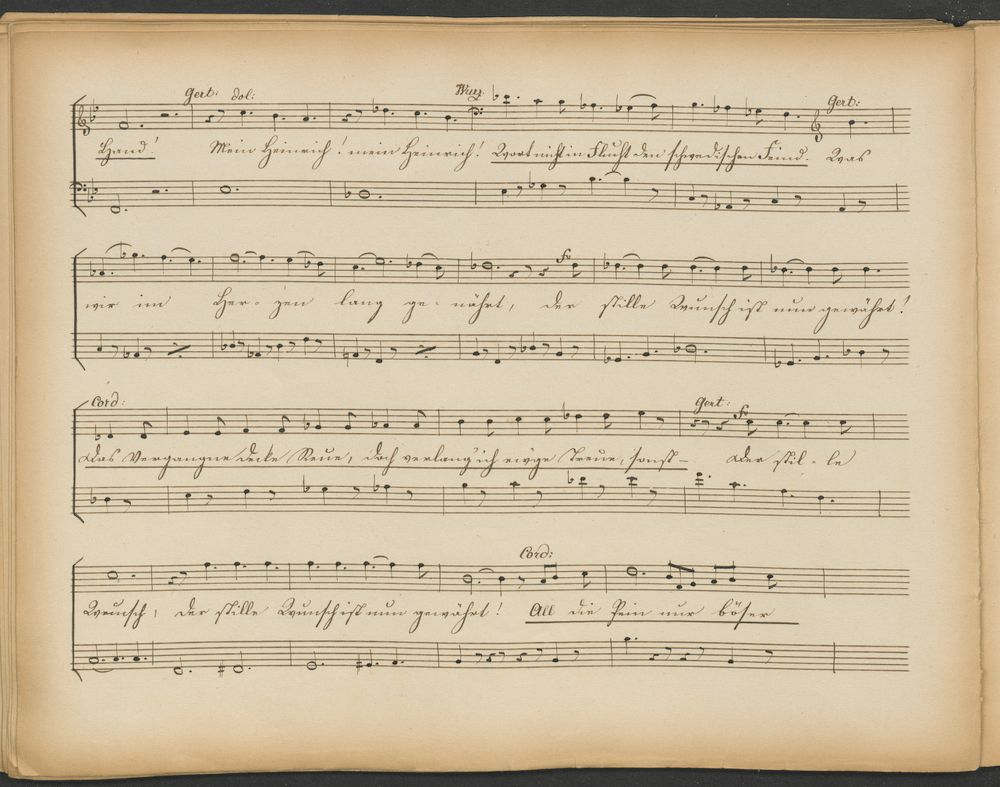 Gert: dol: Wurz. Gert:
Hand! Mein Heinrich! mein Heinrich! Wort nicht in Flucht den schwedischen Feind. Was
wir im Her- zen lang ge- nährt, der stille Wunsch ist nun gewährt!
Cord: Gert:
Das Vergangne decke Reue, doch verlang' ich ew'ge Treue, sonst _ Der stil- le
Cord:
Wunsch, der stille Wunsch ist nun gewährt! All die Pein nur böser